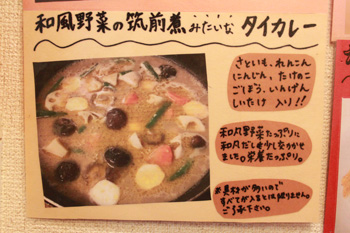 和風野菜の筑前煮みたいな タイカレー
さといも、れんこん
にんじん、たけのこ
ごぼう、いんげん
しいたけ 入り!!
和風野菜たっぷりに
和風だしも少しきかせ
ました。栄養たっぷり。
※具材が多いので
すべてが入るとは限りません。
ご了承下さい。